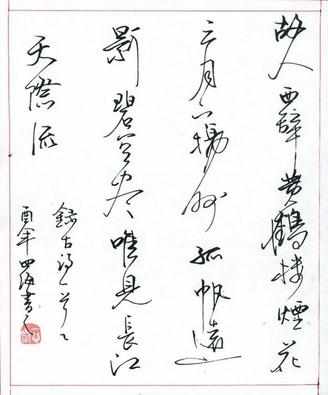 故人西辭黄鶴楼煙花
三月下揚州孤帆遠
影碧空尽唯見長江
天際流
錄古诗一首乙
酉年